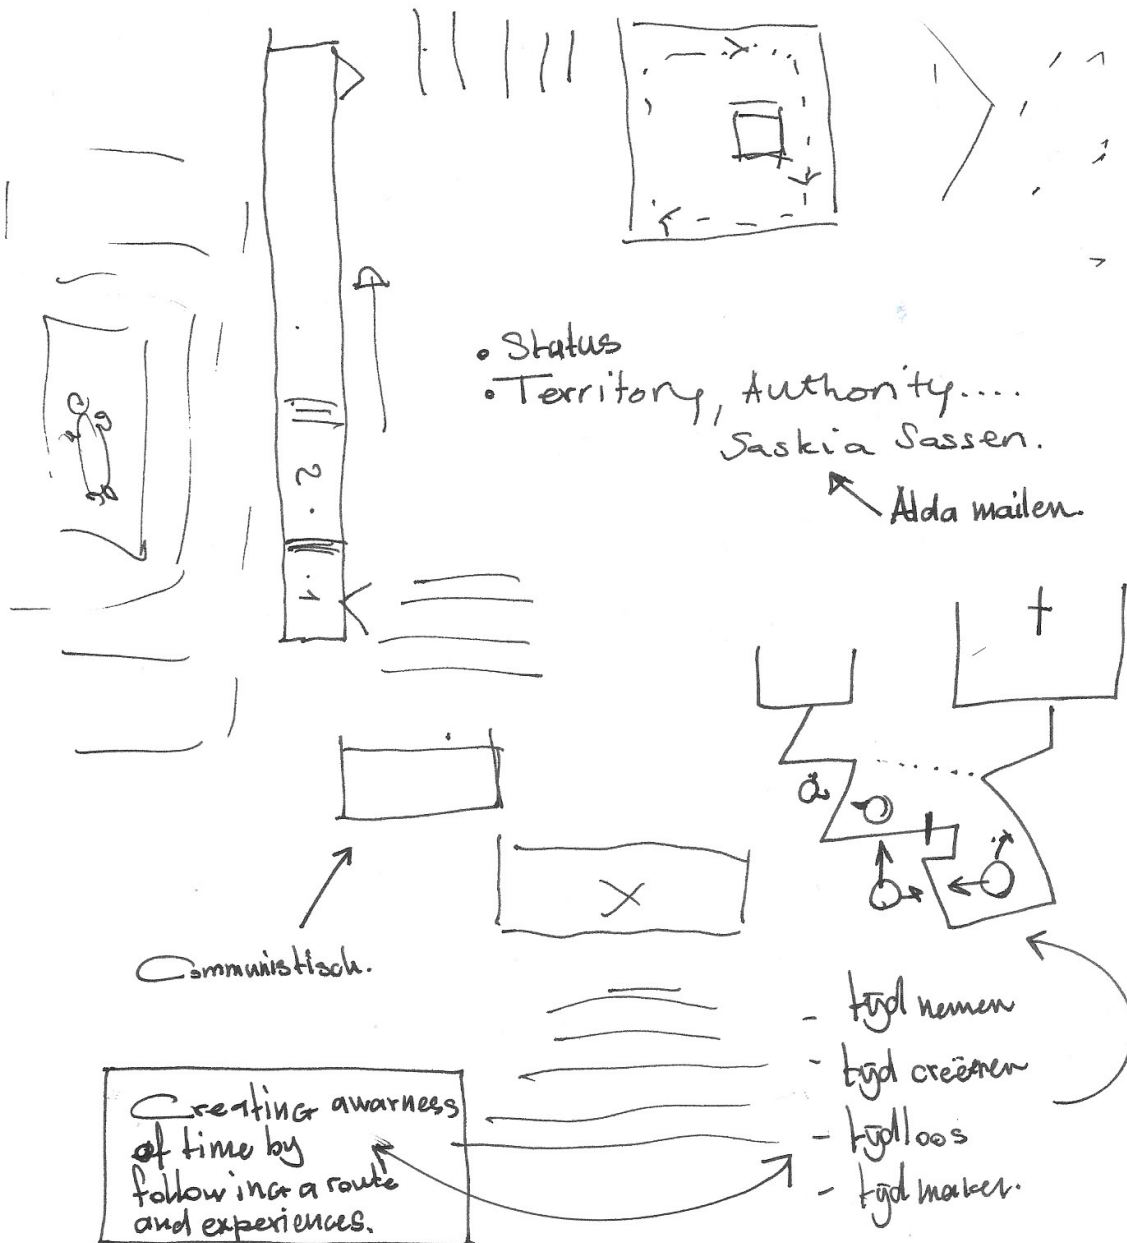 • Status
• Territory, Authority....
Saskia Sassen.
Alda mailen.
2
1
Communistisch.
- tijd nemen
- tijd creëeren
- tijdloos
- tijd maken.
Creating awarness
of time by
following a route
and experiences.